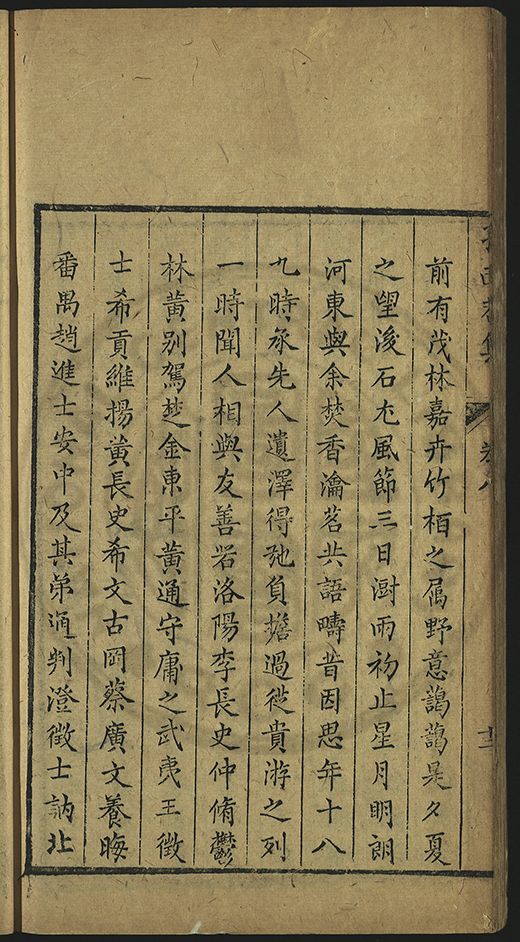 前有茂林嘉卉竹栢之属野意藹藹是夕夏
之望浚石尤風節三日澍雨初止星月明朗
河東與余焚香瀹茗共語疇昔因思年十八
九時承先人遺澤得弛負擔過從貴游之列
一時聞人相與友善若洛陽李長史仲脩鬱
林黃别駕楚金東平黃通守庸之武夷王徵
士希貢維揚黃長史希文古岡蔡廣文養晦
番禺趙進士安中及其弟通判澄徵士訥北